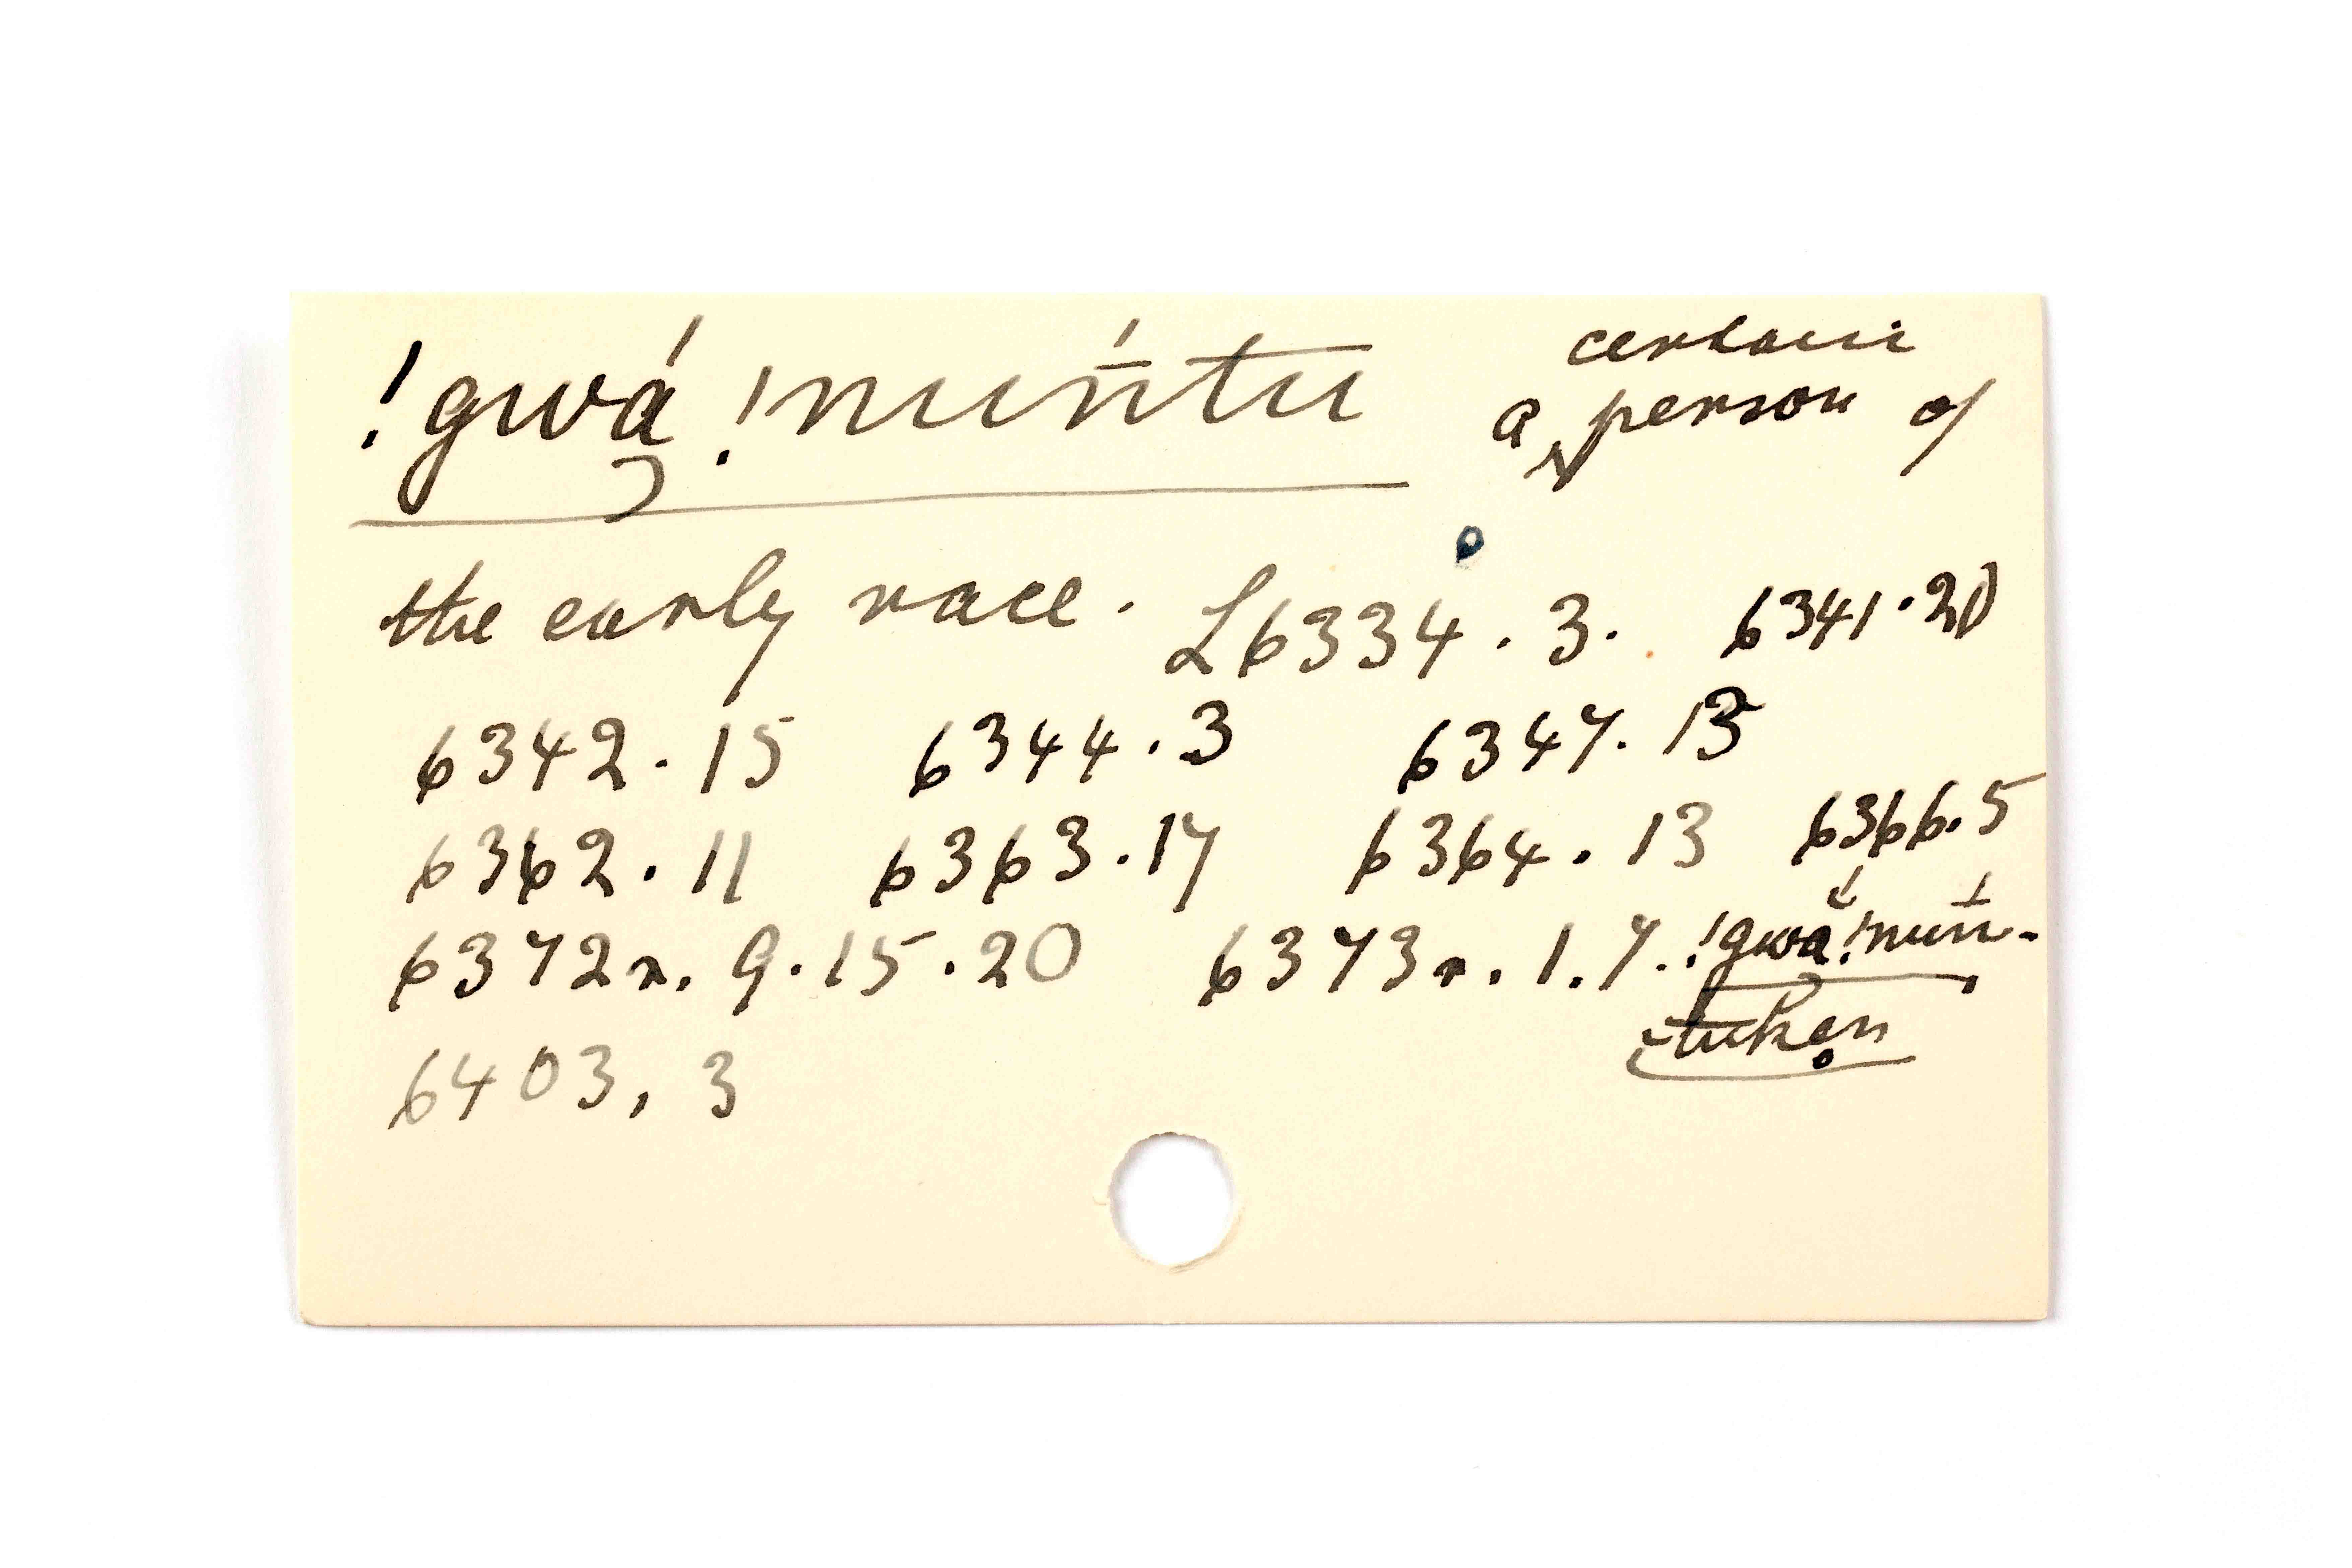 !gwá !nuṅ̄́tu a certain person of
the early race. L6334.3. 6341.20
6342.15 6344.3 6347.13
6362.11 6363.17 6364.13 6366.5
6372r. 9.15.20 6373r. 1.7. !gwa !nuṅ-
tuken
6403, 3